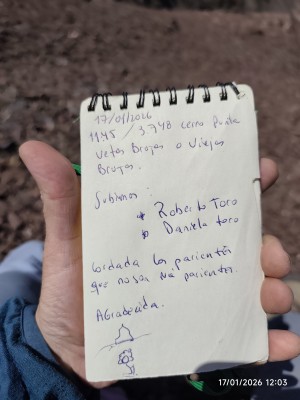 17/01/2026
1145 / 3748 cerro Punta
Vetas Brujas o Viejas
Brujas.
Subimos:
* Roberto Toro
* Daniela toro
los parientes
que no son na parientes.
Agradecida.
17/01/2026 12:03